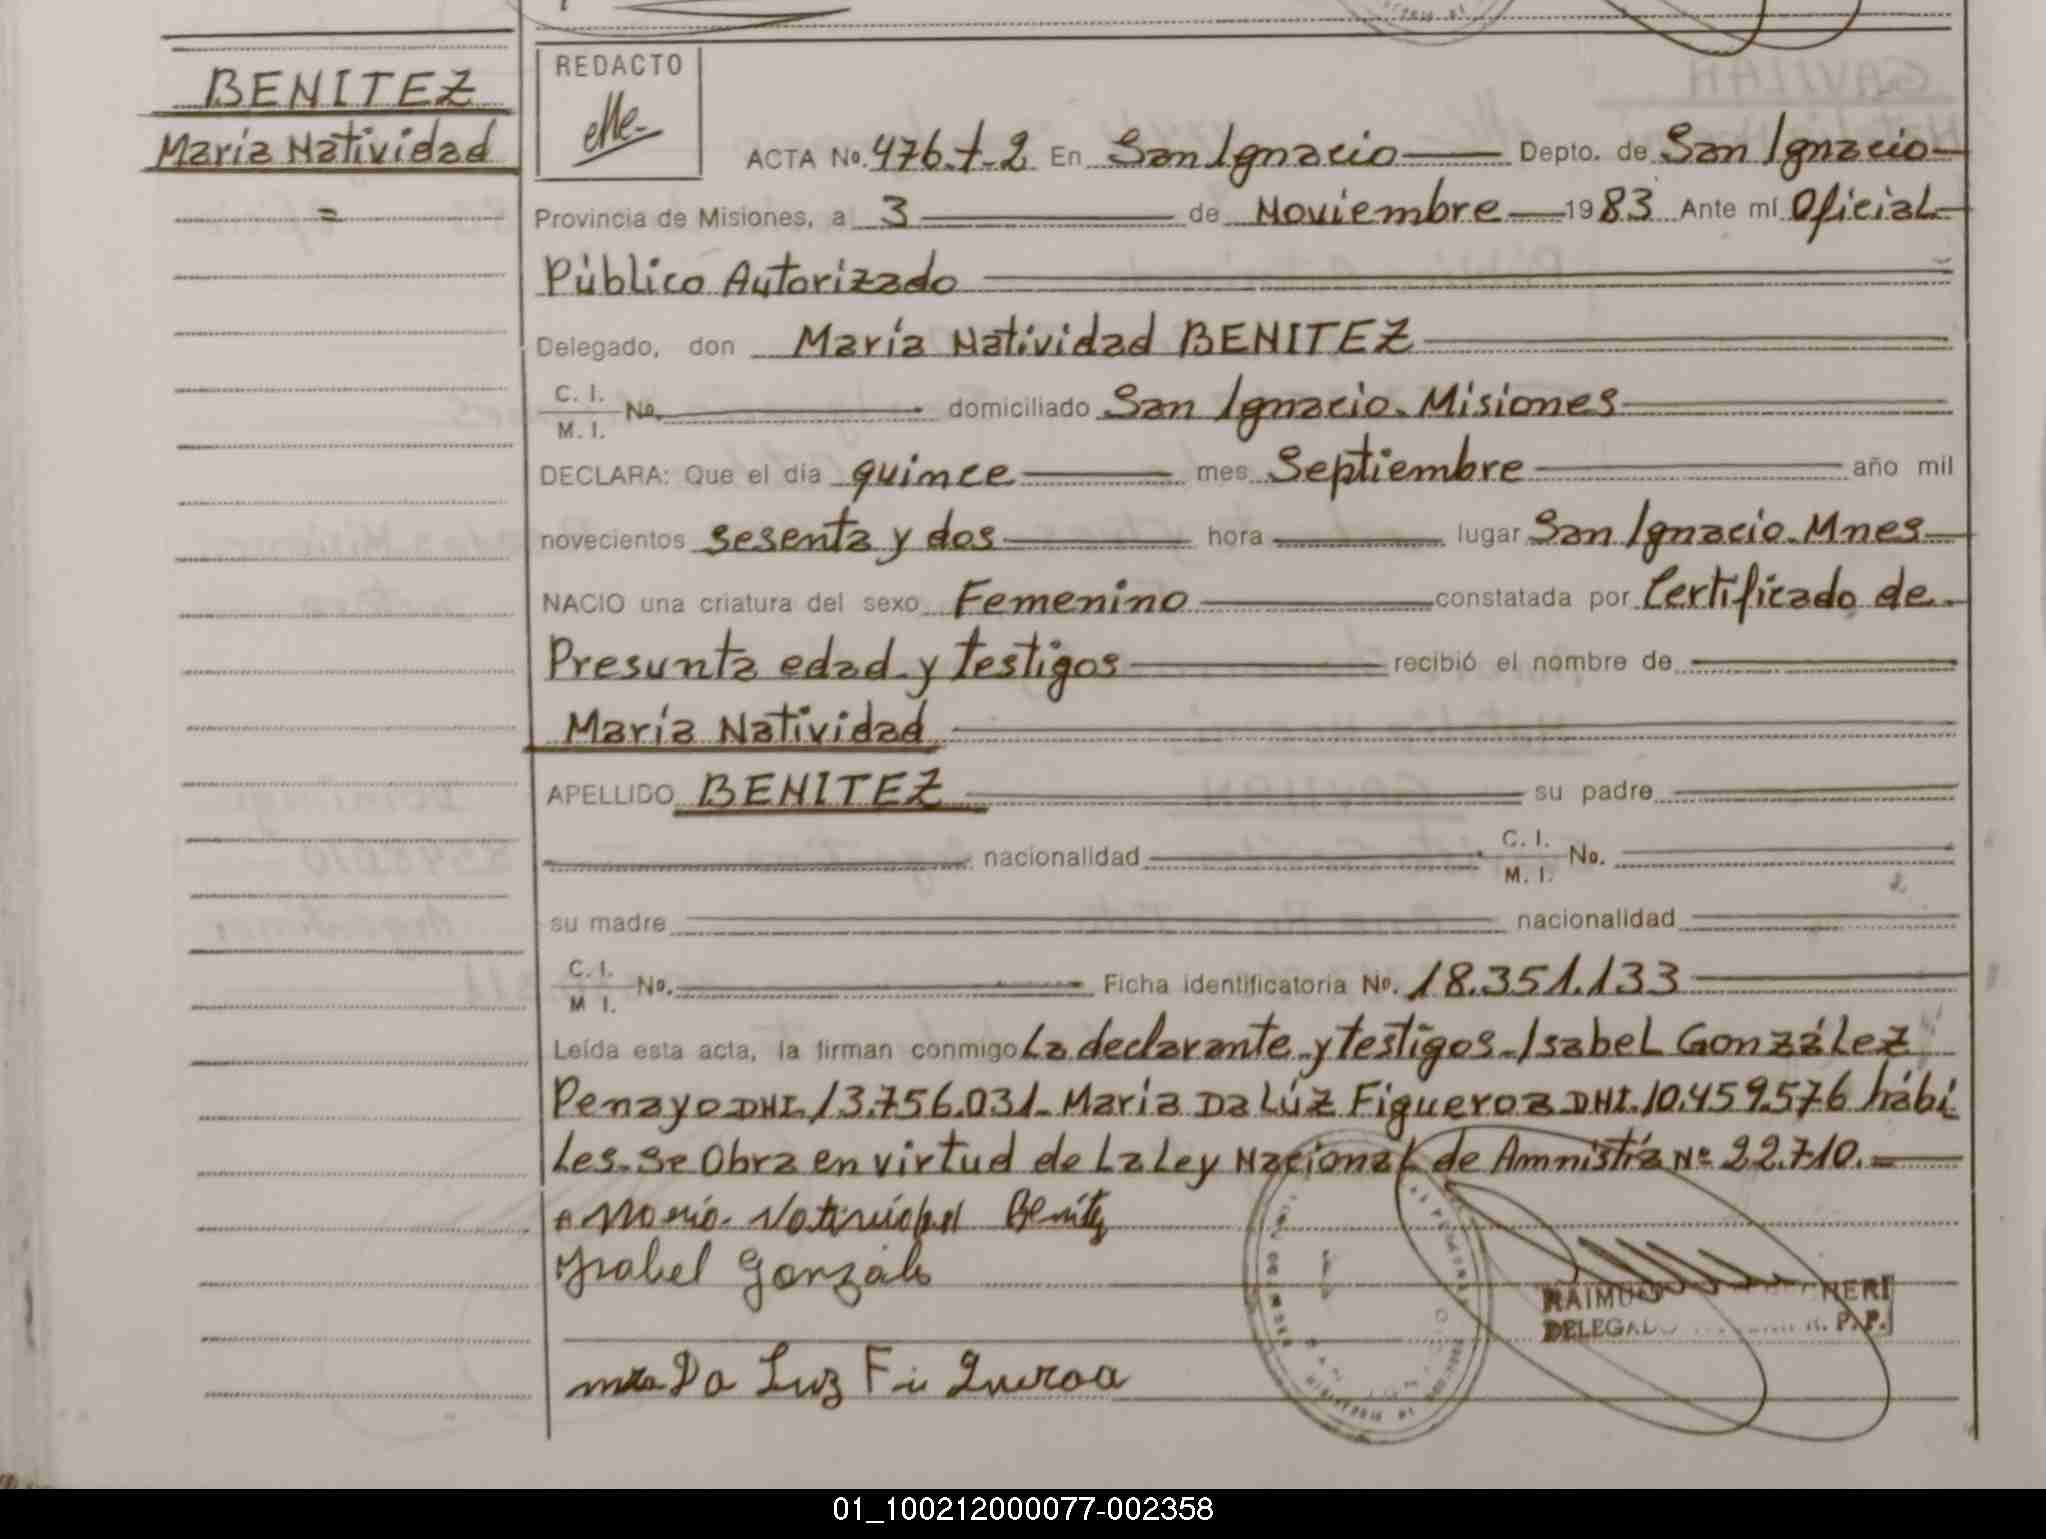 BENITEZ
María Natividad
=
REDACTO
ACTA No. 476.t.2 En San Ignacio Depto. de San Ignacio
Provincia de Misiones, a 3 de Noviembre 1983 Ante mí Oficial
Público Autorizado
Delegado, don María Natividad BENITEZ
C. I.
M. I.
No. domiciliado San Ignacio. Misiones
DECLARA: Que el día quince mes Septiembre año mil
novecientos sesenta y dos hora lugar San Ignacio. Mnes
NACIO una criatura del sexo Femenino constatada por Certificado de
Presunta edad y testigos recibió el nombre de
María Natividad
APELLIDO BENITEZ su padre
nacionalidad C. I.
M. I. No.
su madre nacionalidad
C. I.
M I. No. Ficha identificatoria No. 18.351.133
Leída esta acta, la firman conmigo La declarante y testigos. Isabel González
Penayo DNI. 13.756.031. María Da Lúz Figueroa DNI. 10.459.576 hábi
les. Se Obra en virtud de La Ley Nacional de Amnistía Nº 22.710. =
María Natividad Benitez
Ysabel Gonzáls
Da Luz Fi Queroa
DELEGADO P.P.
01_100212000077-002358